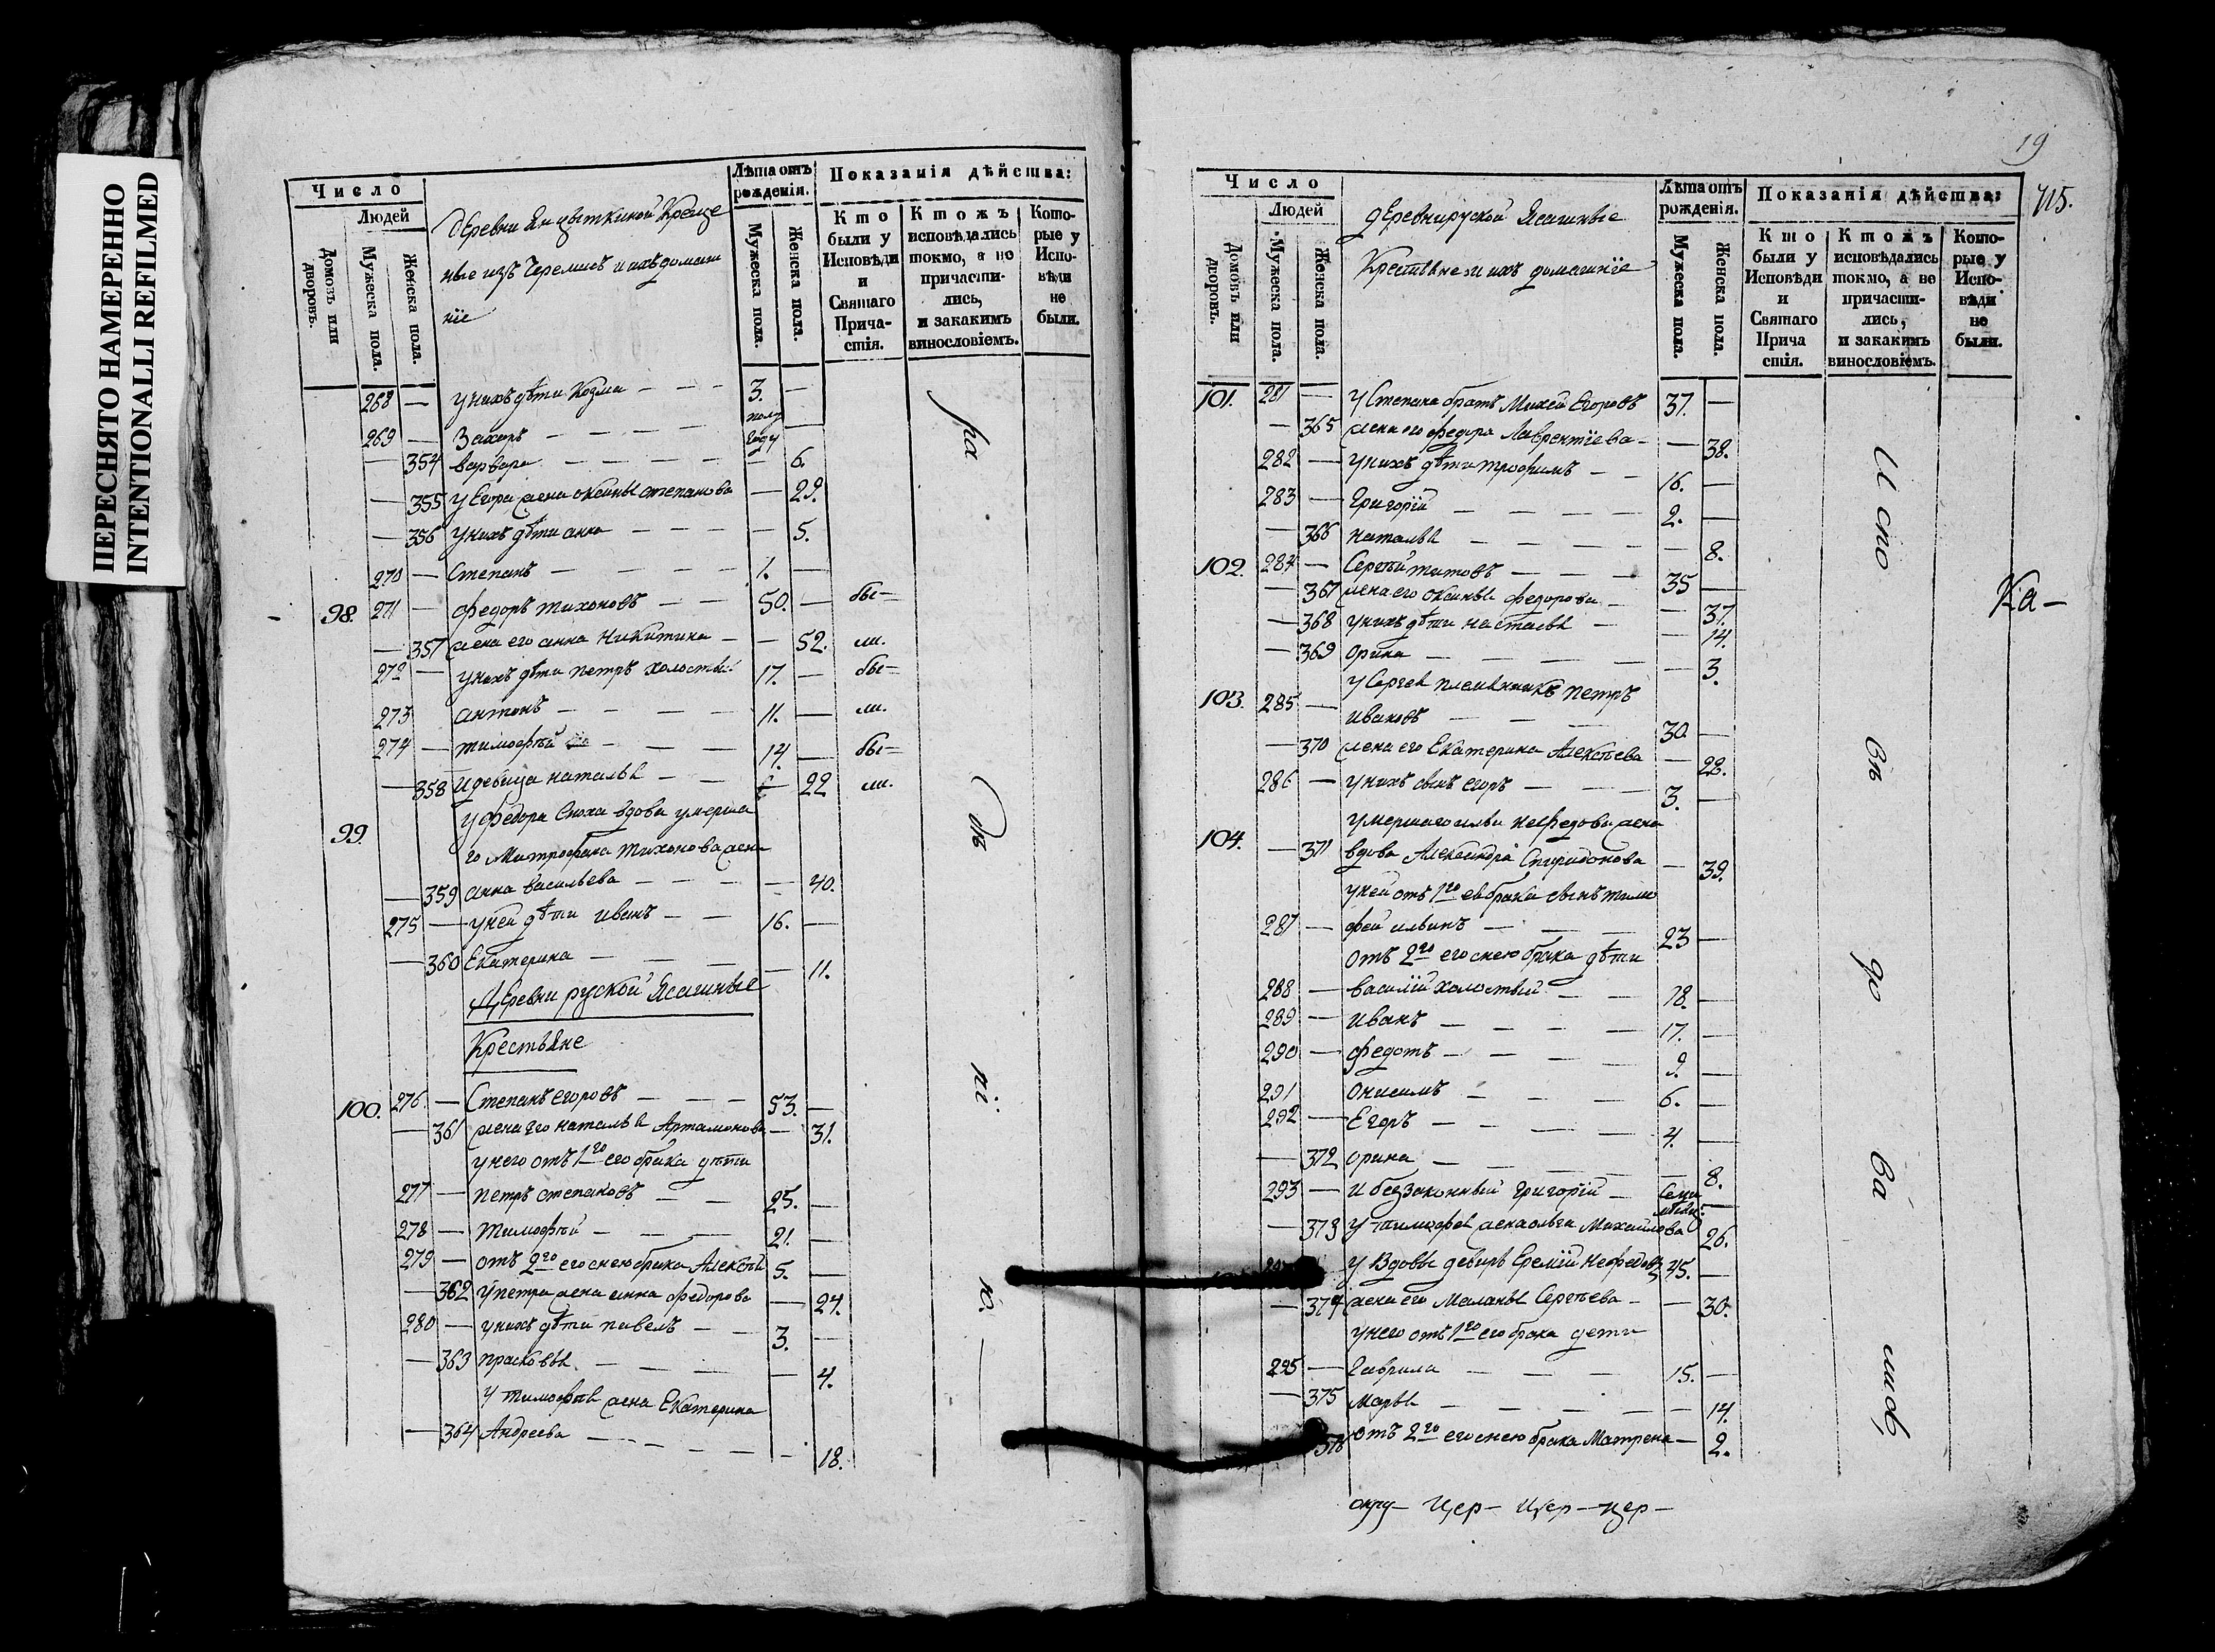 ПЕРЕСНЯТО НАМЕРЕННО
INTENTIONALLI REFILMED
Число
Людей
Домовъ или дворовъ.
Мужеска пола.
Женска пола.
деревни Крещеные изъ Черемисъ и ихъ домашніе
Лѣта отъ рожденія.
Мужеска пола.
Женска пола.
Показанія дѣйства:
Кто были у Исповѣди и Святаго Причастія.
Ктожъ исповѣдались токмо, а не причастились, и закакимъ винословіемъ.
Которые у Исповѣди не были.
268 — у нихъ дѣти Козма — — — 3. —
269 — Захаръ — — — — полугоду —
— 354 варвара — — — — — 6.
— 355 у Егора жена оксинья степанова — 29.
— 356 у нихъ дѣти анна — — — — 5.
270 — Степанъ — — — — 1. —
98. 271 — федоръ тихоновъ — — 50. — бы=
— 357 жена его анна Никитина — — 52. ли.
272 — у нихъ дѣти петръ холостый 17. — бы=
273 антонъ — — — — 11. — ли.
274 — тимофѣй — — — 14. — бы=
— 358 и девица наталья — — — 22 ли.
99. у федора сноха вдова умерша
го Митрофана тихонова жена
— 359 анна васильева — — — — 40.
275 — у ней дѣти иванъ — — 16. —
— 360 Екатерина — — — — 11.
Деревни руской Ясашные
Крестьяне
100. 276. — Степанъ егоровъ — — — 53. —
— 361 жена его наталья Артамонова — 31.
у него отъ 1го его брака дѣти
277 — петръ степановъ — — 25. —
278 — Тимофѣй — — — 21. —
279 — отъ 2го его снею брака Алексѣй 5. —
— 362 у петра жена анна федорова — 24.
280 — у нихъ дѣти павелъ — — 3. —
— 363 прасковья — — — — 4.
у тимофѣя жена Екатерина
— 364 Андреева — — — — — 18.
19
415.
Число
Людей
Домовъ или дворовъ.
Мужеска пола.
Женска пола.
деревни руской Ясашные
Крестьяне и ихъ домашніе
Лѣта отъ рожденія.
Мужеска пола.
Женска пола.
Показанія дѣйства:
Кто были у Исповѣди и Святаго Прича стія.
Ктожъ исповѣдались токмо, а не причастились, и закакимъ винословіемъ.
Которые у Исповѣди не были.
101. 281 — у Степана братъ Михей Егоровъ 37. —
— 365 жена его федора Лаврентіева — — 38.
282 — у нихъ дѣти трофимъ — 16. —
283 — Григорій — — — — 2. —
— 366 наталья — — — — — 8.
102. 284 — Сергѣй титовъ — — — 35 —
— 367 жена его оксинья федорова — — 37.
— 368 у нихъ дѣти настасья — — 14.
— 369 орина — — — — — 3.
у Сергея племянникъ петръ
103. 285 — ивановъ — — — 30. —
— 370 жена его Екатерина Алексѣева — 28.
286 — у нихъ сынъ егоръ — — — 3. —
умершаго ильи нефедова жена
104. — 371 вдова Александра Спиридонова — 39.
у ней отъ 1го ея брака сынъ тимо
287 — фей ильинъ — — — 23 —
отъ 2го его снею брака дѣти
288 — василій холостый — — 18. —
289 — иванъ — — — — 17. —
290 — федотъ — — — — 9. —
291 онисимъ — — — — 6. —
292 — Егоръ — — — — 4. —
— 372 орина — — — — — 8.
293 — и беззаконный григорій —
— 373 у тимофея жена ольга Михайлова 26.
у вдовы деверь Еремѣй Нефедовъ 45. —
— 374 жена его Маланья Сергѣева — — 30.
у него отъ 1го его брака дети
295 — гаврила — — — — 15. —
— 375 марья — — — — — 14.
отъ 2го его снею брака Матрена — 2.
Испо вѣ до ва лись
Ка—